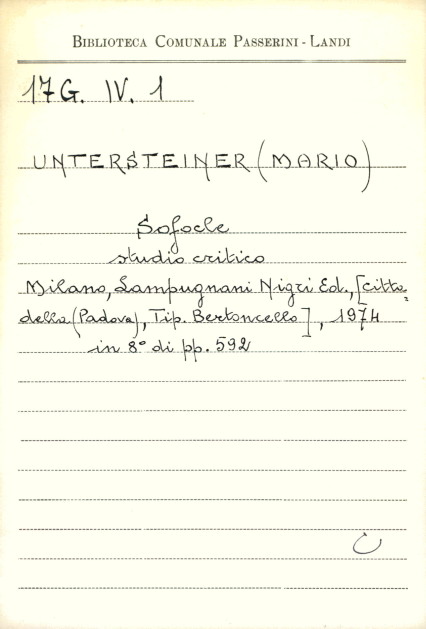 BIBLIOTECA COMUNALE PASSERINI - LANDI
17 G. IV. 1
UNTERSTEINER (MARIO)
Sofocle
studio critico
Milano, Lampugnani Nigri Ed., [Citta-
della (Padova), Tip. Bertoncello], 1974
in 8° di pp. 592
C